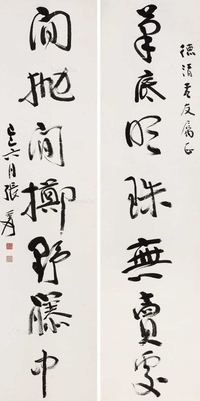 德清黃友屬正
筆底明珠無賣處
閒拋閒擲野藤中
乙巳六月 張爰